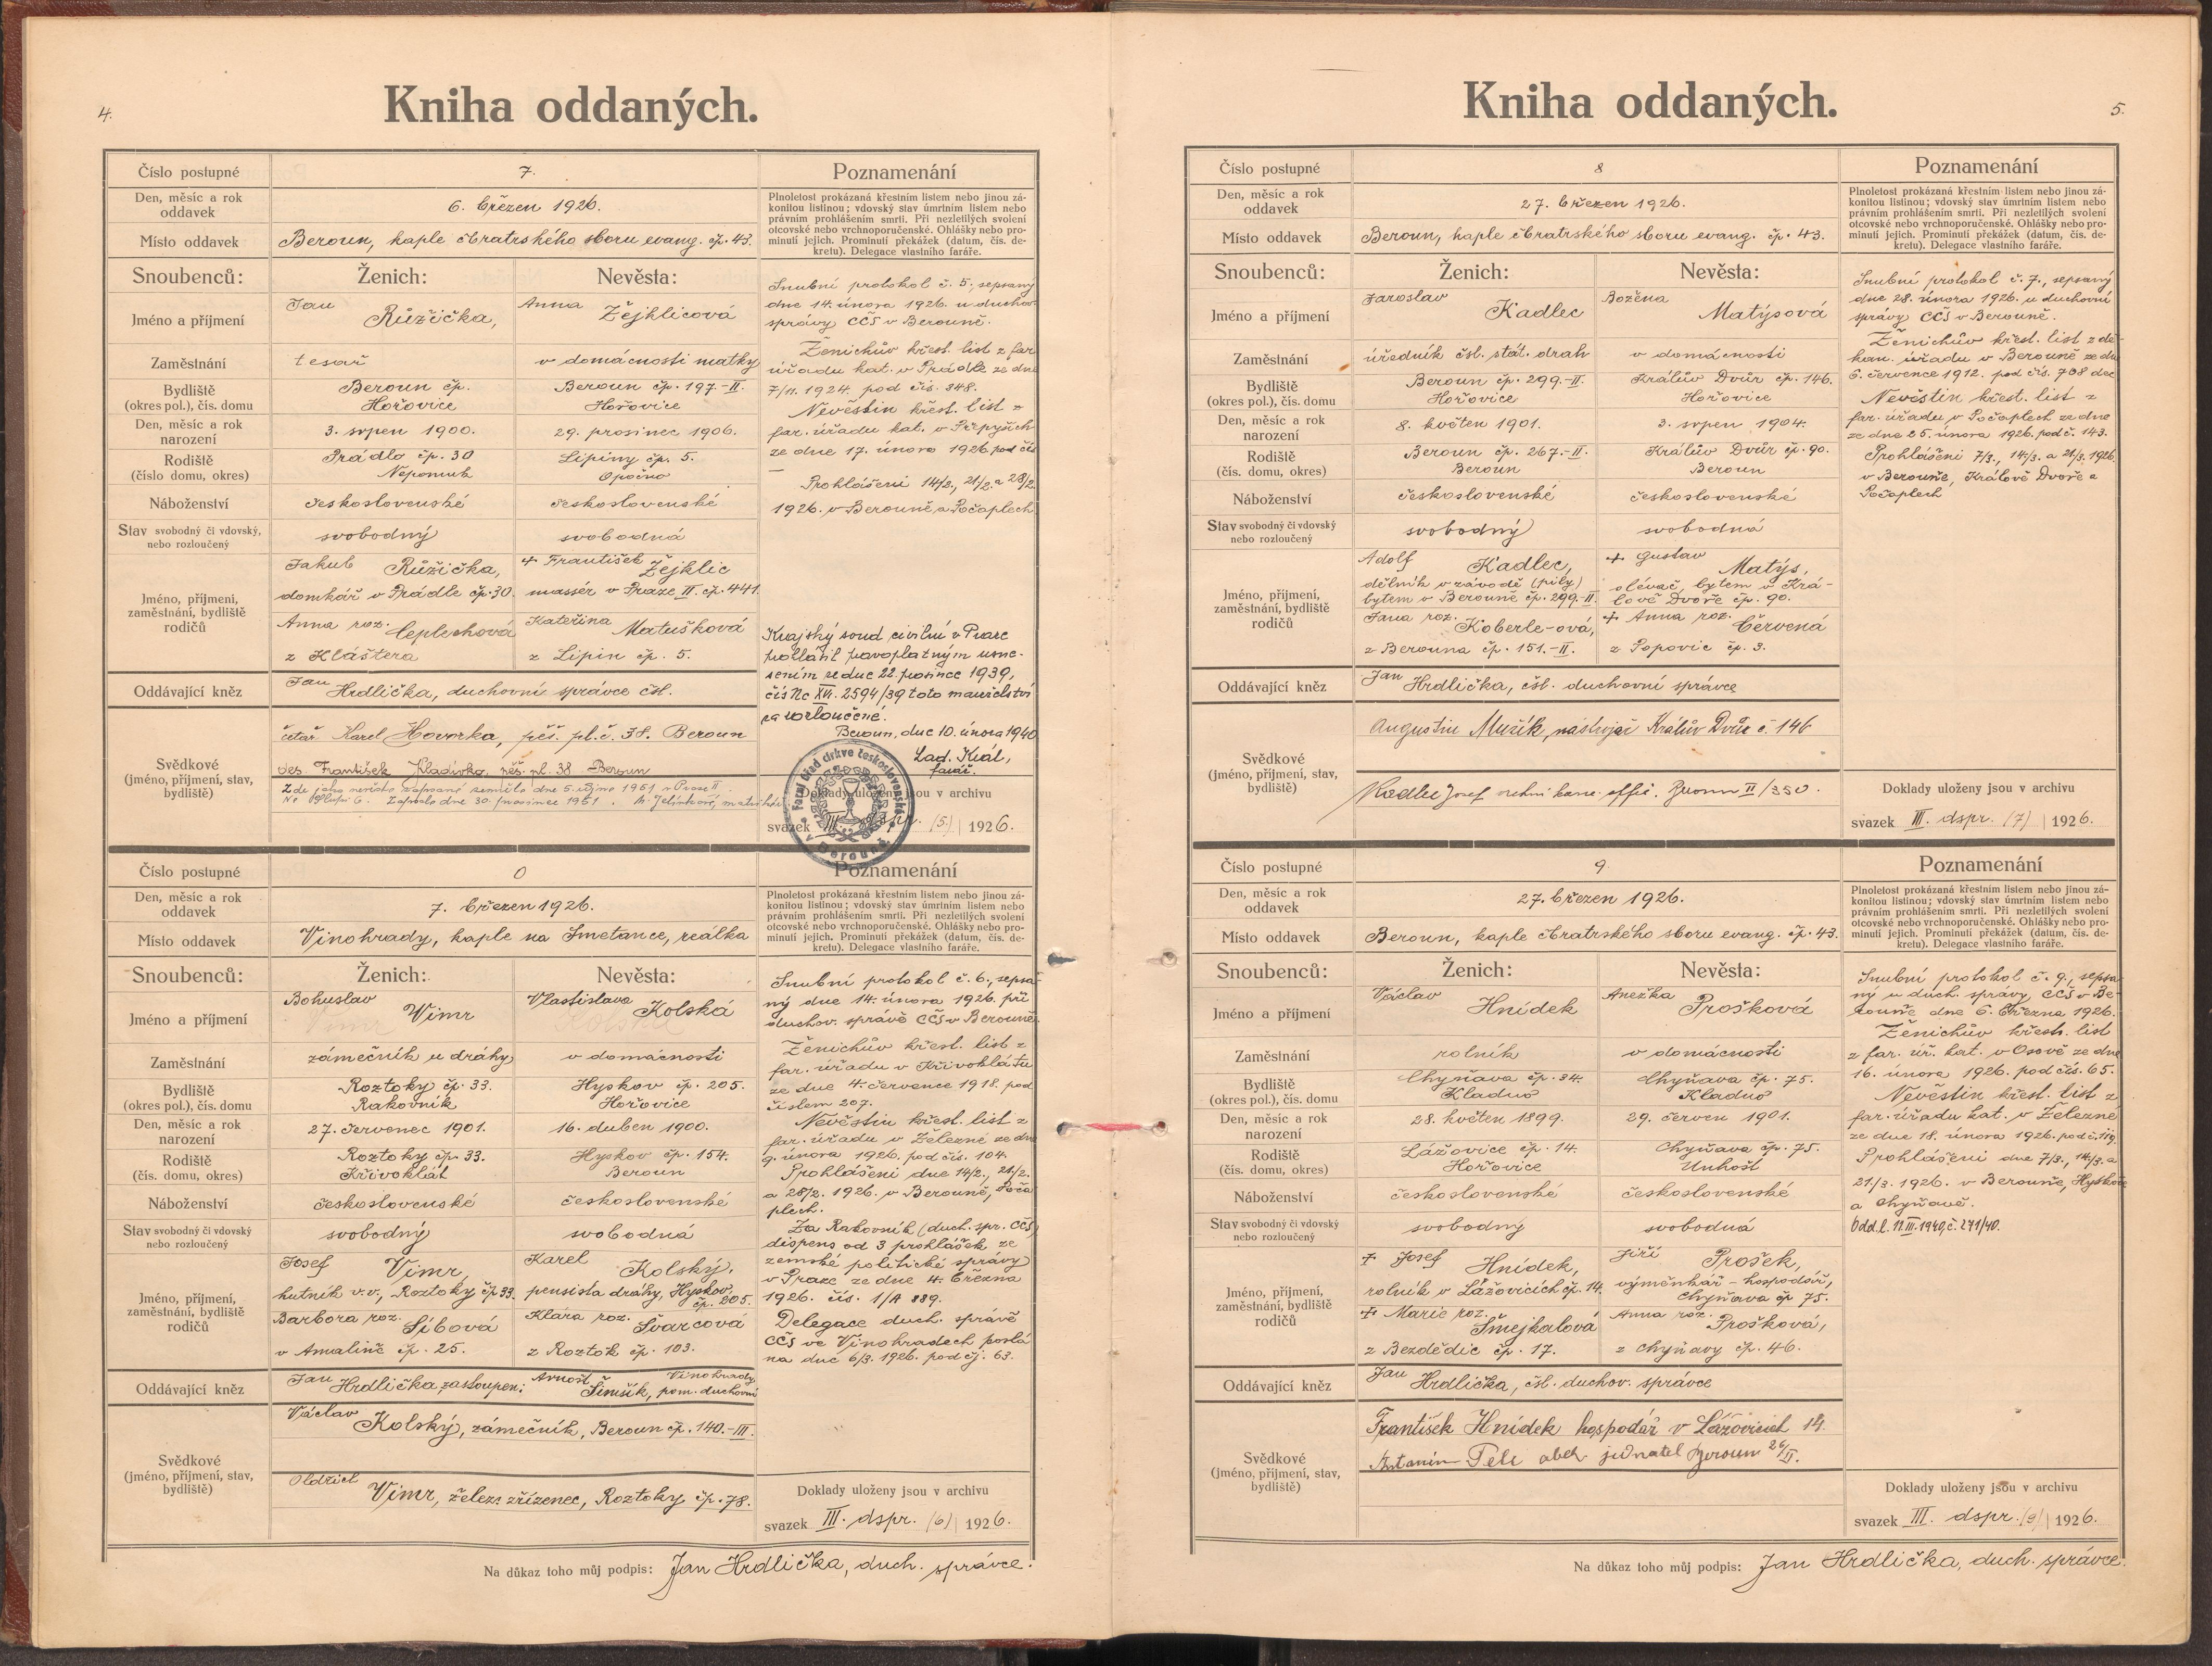 4.
Kniha oddaných.
Číslo postupné 7.
Den, měsíc a rok oddavek 6. březen 1926.
Místo oddavek Beroun, kaple čbratrského sboru evang. čp. 43.
Poznamenání
Plnoletost prokázaná křestním listem nebo jinou zá-
konitou listinou; vdovský stav úmrtním listem nebo
právním prohlášením smrti. Při nezletilých svolení
otcovské nebo vrchnoporučenské. Ohlášky nebo pro-
minutí jejich. Prominutí překážek (datum, čís. de-
kretu). Delegace vlastního faráře.
Snoubenců: Ženich: Nevěsta:
Jméno a příjmení Jan Růžička, Anna Žejhlicová
Zaměstnání tesař v domácnosti matky
Bydliště Beroun čp. Beroun čp. 197-II.
(okres pol.), čís. domu Hořovice Hořovice
Den, měsíc a rok narození 3. srpen 1900. 29. prosinec 1906.
Rodiště Prádlo čp. 30 Lipiny čp. 5.
(číslo domu, okres) Nepomuk Opočno
Náboženství československé československé
Stav svobodný či vdovský, nebo rozloučený svobodný svobodná
Jméno, příjmení, zaměstnání, bydliště rodičů
Jakub Růžička, + František Žejklic
domkář v Prádle čp. 30. massér v Praze II. čp. 441.
Anna roz. Ceplechová Kateřina Matušková
z Kláštera z Lipin čp. 5.
Oddávající kněz Jan Hrdlička, duchovní správce čsl.
Svědkové (jméno, příjmení, stav, bydliště)
četař Karel Hovorka, pěš. pl. č. 38. Beroun
des. František Kladívko, pěš. pl. 38 Beroun
Zde jako nevěsta zapsaná zemřela dne 5. října 1951 v Praze II.
Zapsáno dne 30. prosince 1951. M. Jelínková, matrikářka
Snubní protokol č. 5, sepsaný
dne 14. února 1926. u duchov.
správy CČS v Berouně.
Ženichův křest. list z far.
úřadu kat. v Prádle ze dne
7/11. 1924. pod čís. 348.
Nevěstin křest. list z
far. úřadu kat. v Přepyších
ze dne 17. února 1926 pod čís
—
Prohlášení 14/2., 21/2. a 28/2.
1926. v Berouně a Počaplech
Krajský soud civilní v Praze
prohlásil pravoplatným usne-
sením ze dne 22. prosince 1939,
čís Nc XVI. 2594/39 toto manželství
za rozloučené.
Beroun, dne 10. února 1940
Lad. Král,
farář.
Farní úřad církve československé v Berouně
Doklady uloženy jsou v archivu
svazek III. dspr. (5) 1926.
Číslo postupné 0
Den, měsíc a rok oddavek 7. březen 1926.
Místo oddavek Vinohrady, kaple na Smetance, reálka
Poznamenání
Plnoletost prokázaná křestním listem nebo jinou zá-
konitou listinou; vdovský stav úmrtním listem nebo
právním prohlášením smrti. Při nezletilých svolení
otcovské nebo vrchnoporučenské. Ohlášky nebo pro-
minutí jejich. Prominutí překážek (datum, čís. de-
kretu). Delegace vlastního faráře.
Snoubenců: Ženich: Nevěsta:
Jméno a příjmení Bohuslav Vimr Vlastislava Kolská
Zaměstnání zámečník u dráhy v domácnosti
Bydliště Roztoky čp. 33. Hyskov čp. 205.
(okres pol.), čís. domu Rakovník Hořovice
Den, měsíc a rok narození 27. červenec 1901. 16. duben 1900.
Rodiště Roztoky čp. 33. Hyskov čp. 154.
(čís. domu, okres) Křivoklát Beroun
Náboženství československé československé
Stav svobodný či vdovský nebo rozloučený svobodný svobodná
Jméno, příjmení, zaměstnání, bydliště rodičů
Josef Vimr, Karel Kolský,
hutník v.v., Roztoky čp 33. pensista dráhy, Hyskov, čp. 205.
Barbora roz. Síbová Klára roz. Švarcová
v Amalině čp. 25. z Roztok čp. 103.
Oddávající kněz Jan Hrdlička zastoupen: Arnošt Šimšík, pom. duchovní Vinohrady
Svědkové (jméno, příjmení, stav, bydliště)
Václav Kolský, zámečník, Beroun čp. 140.-III.
Oldřich Vimr, želez. zřízenec, Roztoky čp. 78.
Snubní protokol č. 6., sepsa-
ný dne 14. února 1926. při
duchov. správě CČS v Berouně.
Ženichův křest. list z
far. úřadu v Křivoklátu
ze dne 4. července 1918. pod
číslem 207.
Nevěstin křest. list z
far. úřadu v Železné ze dne
9. února 1926. pod čís. 104.
Prohlášení dne 14/2., 21/2.
a 28/2. 1926. v Berouně, Poča-
plech.
Za Rakovník (duch. spr. CČS)
dispens od 3 prohlášek ze
zemské politické správy
v Praze ze dne 4. března
1926. čís. 1/A 889.
Delegace duch. správě
CČS ve Vinohradech poslá-
na dne 6/3. 1926. pod čj. 63.
Doklady uloženy jsou v archivu
svazek III. dspr. (6) 1926.
Na důkaz toho můj podpis: Jan Hrdlička, duch. správce.
5.
Kniha oddaných.
Číslo postupné 8
Den, měsíc a rok oddavek 27. březen 1926.
Místo oddavek Beroun, kaple čbratrského sboru evang. čp. 43.
Poznamenání
Plnoletost prokázaná křestním listem nebo jinou zá-
konitou listinou; vdovský stav úmrtním listem nebo
právním prohlášením smrti. Při nezletilých svolení
otcovské nebo vrchnoporučenské. Ohlášky nebo pro-
minutí jejich. Prominutí překážek (datum, čís. de-
kretu). Delegace vlastního faráře.
Snoubenců: Ženich: Nevěsta:
Jméno a příjmení Jaroslav Kadlec Božena Matýsová
Zaměstnání úředník čsl. stát. drah v domácnosti
Bydliště Beroun čp. 299.-II. Králův Dvůr čp. 146.
(okres pol.), čís. domu Hořovice Hořovice
Den, měsíc a rok narození 8. květen 1901. 3. srpen 1904.
Rodiště Beroun čp. 267.-II. Králův Dvůr čp. 90.
(čís. domu, okres) Beroun Beroun
Náboženství československé československé
Stav svobodný či vdovský nebo rozloučený svobodný svobodná
Jméno, příjmení, zaměstnání, bydliště rodičů
Adolf Kadlec, + Gustav Matýs,
dělník v závodě (pily) slévač, bytem v Krá-
bytem v Berouně čp. 299.-II. lově Dvoře čp. 90.
Jana roz. Koberle-ová, + Anna roz. Červená
z Berouna čp. 151.-II. z Popovic čp. 3.
Oddávající kněz Jan Hrdlička, čsl. duchovní správce
Svědkové (jméno, příjmení, stav, bydliště)
Augustin Mužík, nástrojař Králův Dvůr č. 146
Kadlec Josef II/350.
Snubní protokol č. 7., sepsaný
dne 28. února 1926. u duchovní
správy CČS v Berouně.
Ženichův křest. list z dě-
kan. úřadu v Berouně ze dne
6. července 1912. pod čís. 708 dec
Nevěstin křest. list z
far. úřadu v Počaplech ze dne
ze dne 25. února 1926. pod č. 143.
Prohlášení 7/3., 14/3. a 21/3. 1926.
v Berouně, Králově Dvoře a
Počaplech
Doklady uloženy jsou v archivu
svazek III. dspr. (7) 1926.
Číslo postupné 9.
Den, měsíc a rok oddavek 27. březen 1926.
Místo oddavek Beroun, kaple čbratrského sboru evang. čp. 43.
Poznamenání
Plnoletost prokázaná křestním listem nebo jinou zá-
konitou listinou; vdovský stav úmrtním listem nebo
právním prohlášením smrti. Při nezletilých svolení
otcovské nebo vrchnoporučenské. Ohlášky nebo pro-
minutí jejich. Prominutí překážek (datum, čís. de-
kretu). Delegace vlastního faráře.
Snoubenců: Ženich: Nevěsta:
Jméno a příjmení Václav Hnídek Anežka Prošková
Zaměstnání rolník v domácnosti
Bydliště Chyňava čp. 34. Chyňava čp. 75.
(okres pol.), čís. domu Kladno Kladno
Den, měsíc a rok narození 28. květen 1899. 29. červen 1901.
Rodiště Lážovice čp. 14. Chyňava čp. 75.
(čís. domu, okres) Hořovice Unhošť
Náboženství československé československé
Stav svobodný či vdovský nebo rozloučený svobodný svobodná
Jméno, příjmení, zaměstnání, bydliště rodičů
+ Josef Hnídek, Jiří Prošek,
rolník v Lážovicích čp. 14. výměnkář - hospodář, Chyňava čp 75.
+ Marie roz. Šmejkalová Anna roz. Prošková,
z Bezdědic čp. 17. z Chyňavy čp. 46.
Oddávající kněz Jan Hrdlička, čsl. duchov. správce
Svědkové (jméno, příjmení, stav, bydliště)
František Hnídek hospodář v Lážovicích 14.
Antonín jednatel Beroun 26/II.
Snubní protokol č. 9., sepsa-
ný u duch. správy CČS v Be-
rouně dne 6. března 1926.
Ženichův křest. list
z far. úř. kat. v Osově ze dne
16. února 1926. pod čís. 65.
Nevěstin křest. list z
far. úřadu kat. v Železné
ze dne 18. února 1926. pod č. 119.
Prohlášení dne 7/3., 14/3. a
21/3. 1926. v Berouně, Hyskově
a Chyňavě.
Odd. l. 11.III.1940, č. 271/40.
Doklady uloženy jsou v archivu
svazek III. dspr. (9) 1926.
Na důkaz toho můj podpis: Jan Hrdlička, duch. správce.